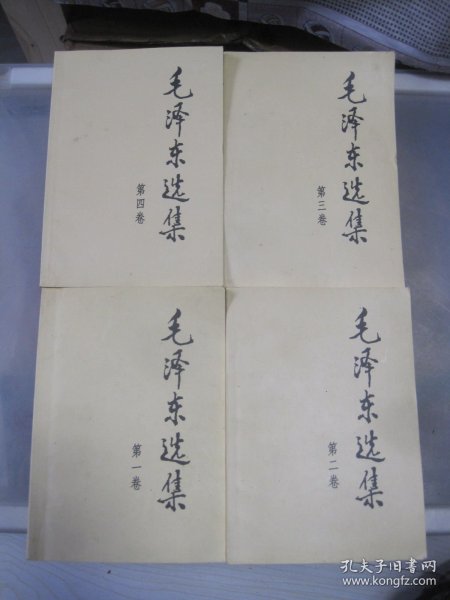 毛泽东选集
第四卷
毛泽东选集
第三卷
毛泽东选集
第一卷
毛泽东选集
第二卷
孔夫子旧书网
www.kongfz.com